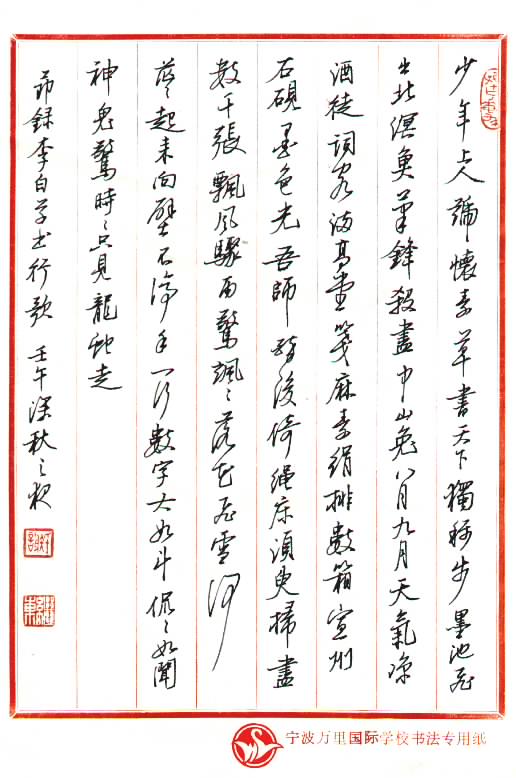 少年上人號懷素草書天下獨稱步墨池飛
出北溟魚筆鋒殺盡中山兔八月九月天氣涼
酒徒詞客滿高堂箋麻素絹排數箱宣州
石硯墨色光吾師醉後倚繩床須臾掃盡
數千張飄風驟雨驚颯〻落花飛雪何
茫〻起來向壁不停手一行數字大如斗怳〻如聞
神鬼驚時〻只見龍蛇走
節錄李白草書行歌 壬午深秋之夜
宁波万里国际学校书法专用纸